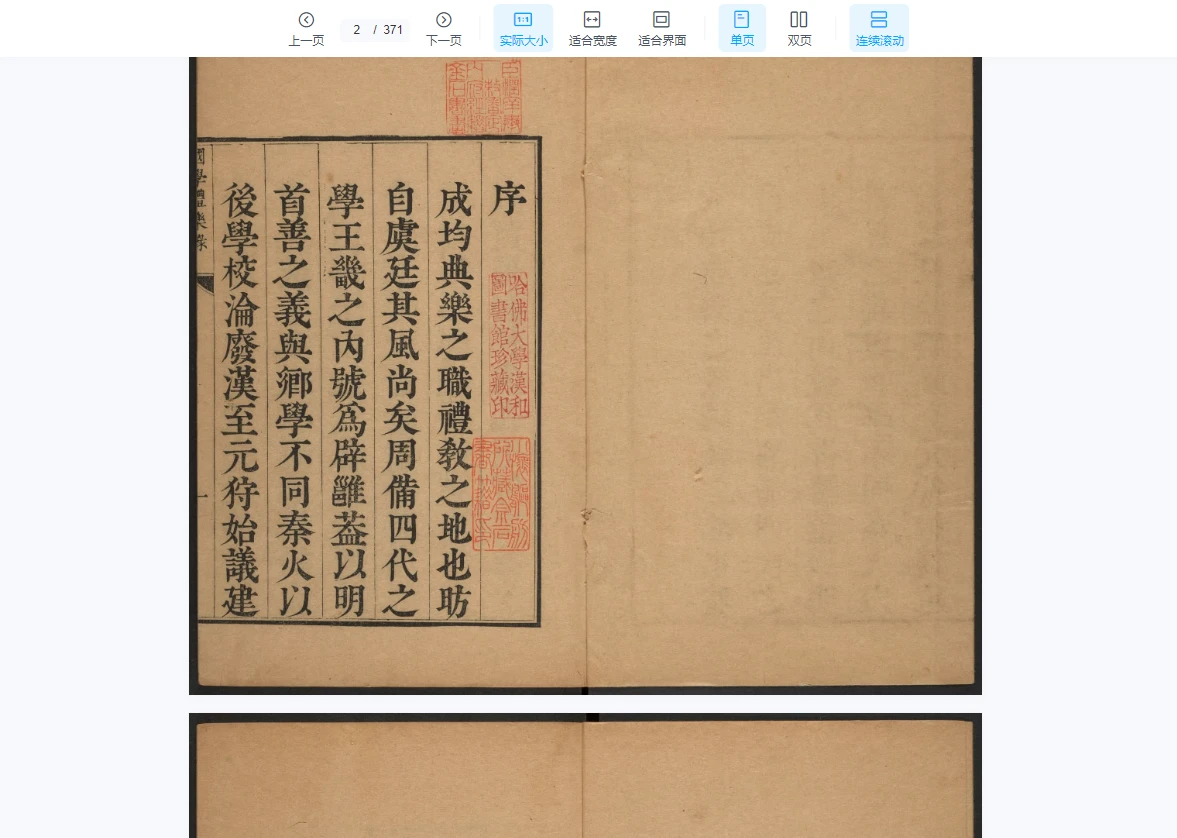 上一页
2 / 371
下一页
1:1
实际大小
适合宽度
适合界面
单页
双页
连续滚动
序
哈佛大學漢和
圖書館珍藏印
成均典樂之職禮敎之地也昉
自虞廷其風尚矣周備四代之
學王畿之內號爲辟雝葢以明
首善之義與鄉學不同秦火以
後學校淪廢漢至元狩始議建
國學禮樂錄
一